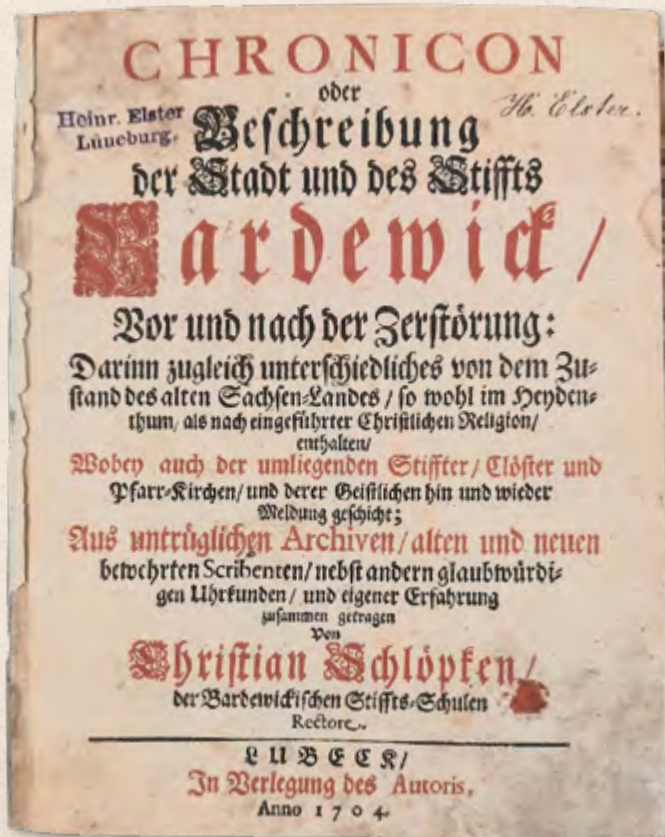 CHRONICON
oder
Heinr. Elster
Lüneburg.
H. Elster.
Beschreibung
der Stadt und des Stiffts
Bardewick /
Vor und nach der Zerstörung:
Darinn zugleich unterschiedliches von dem Zu⸗
stand des alten Sachsen⸗Landes / so wohl im Heyden⸗
thum, als nach eingeführter Christlichen Religion/
enthalten/
Wobey auch der umliegenden Stiffter / Clöster und
Pfarr⸗Kirchen/ und derer Geistlichen hin und wieder
Meldung geschicht;
Aus untrüglichen Archiven / alten und neuen
bewehrten Scribenten/ nebst andern glaubwürdi⸗
gen Uhrkunden / und eigener Erfahrung
zusammen getragen
Von
Christian Schlöpken /
der Bardewickischen Stiffts⸗Schulen
Rectore.
LUBECK/
In Verlegung des Autoris,
Anno 1704.